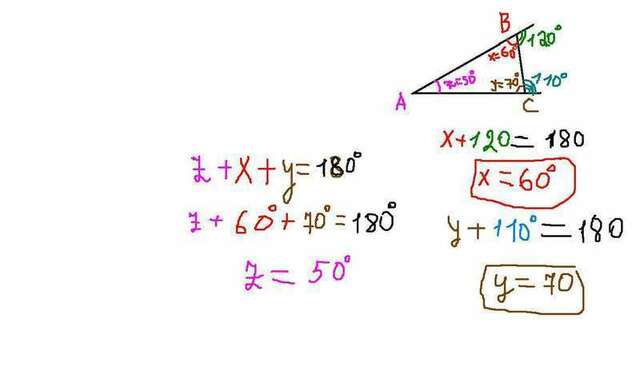 B
120°
x=60°
z=50°
y=70°
110°
A
C
x+120=180
x=60°
y+110°=180
y=70
z+x+y=180°
z+60°+70°=180°
z=50°